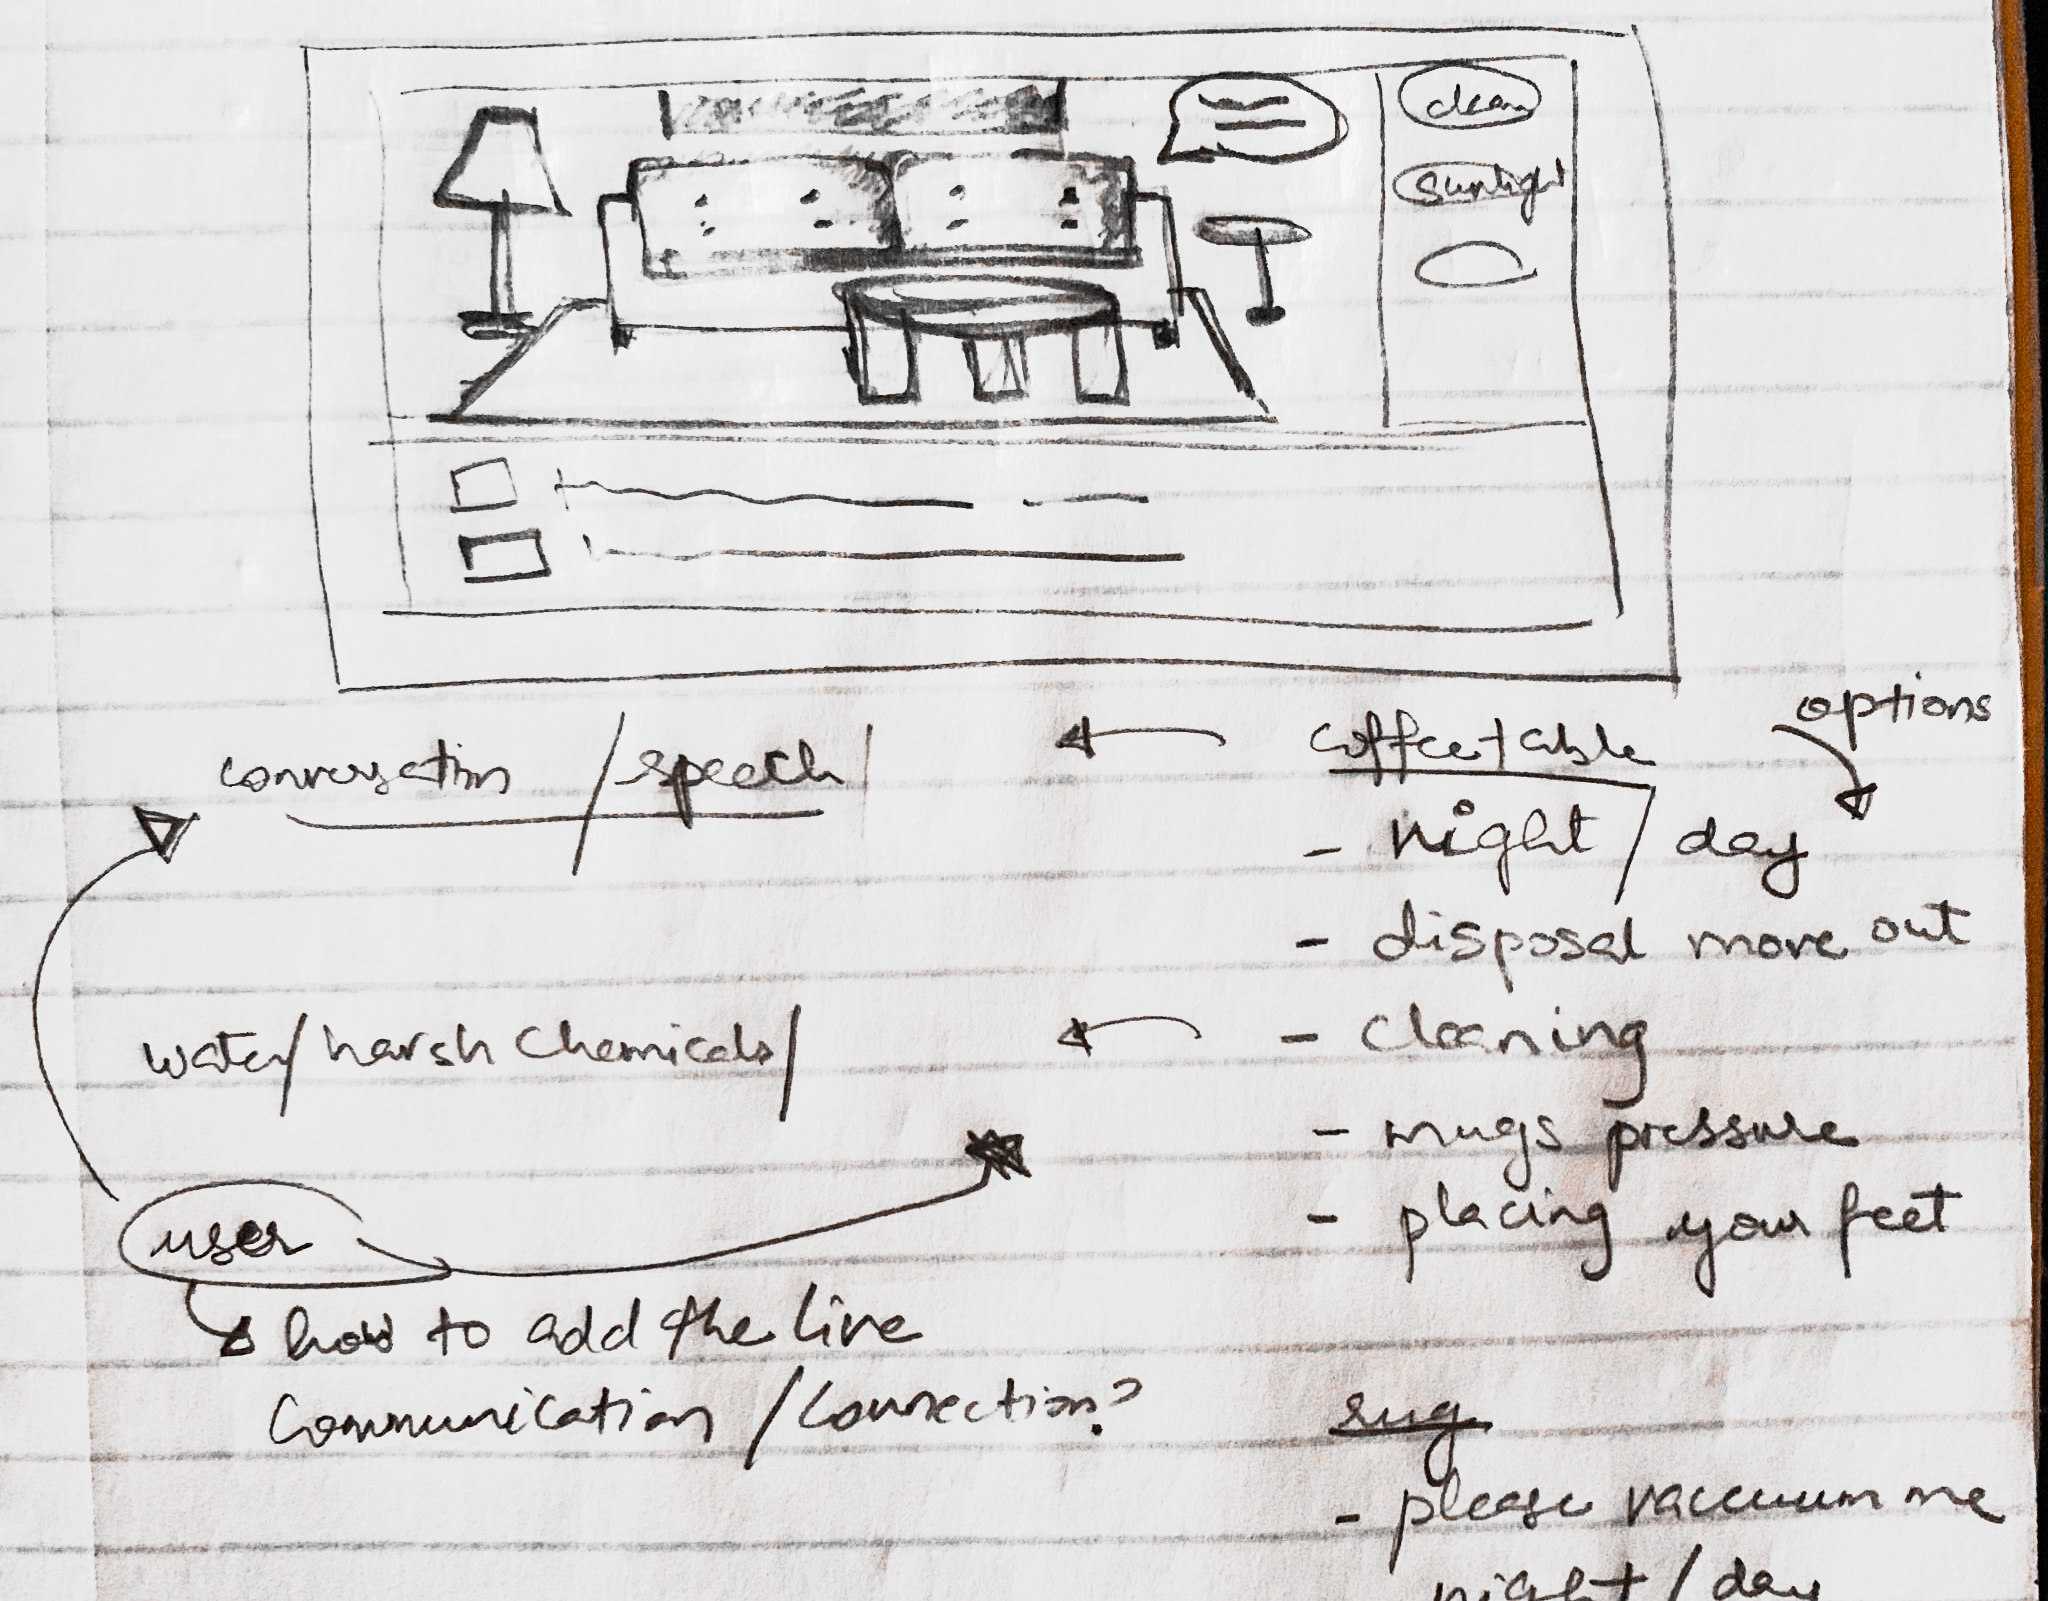 clean
sunlight
options
conversation / speech
coffee table
- night / day
- disposal move out
water/harsh chemicals/
- cleaning
- mugs pressure
- placing your feet
user
how to add the live
communication / connection?
rug
- please vaccuum me
night / day